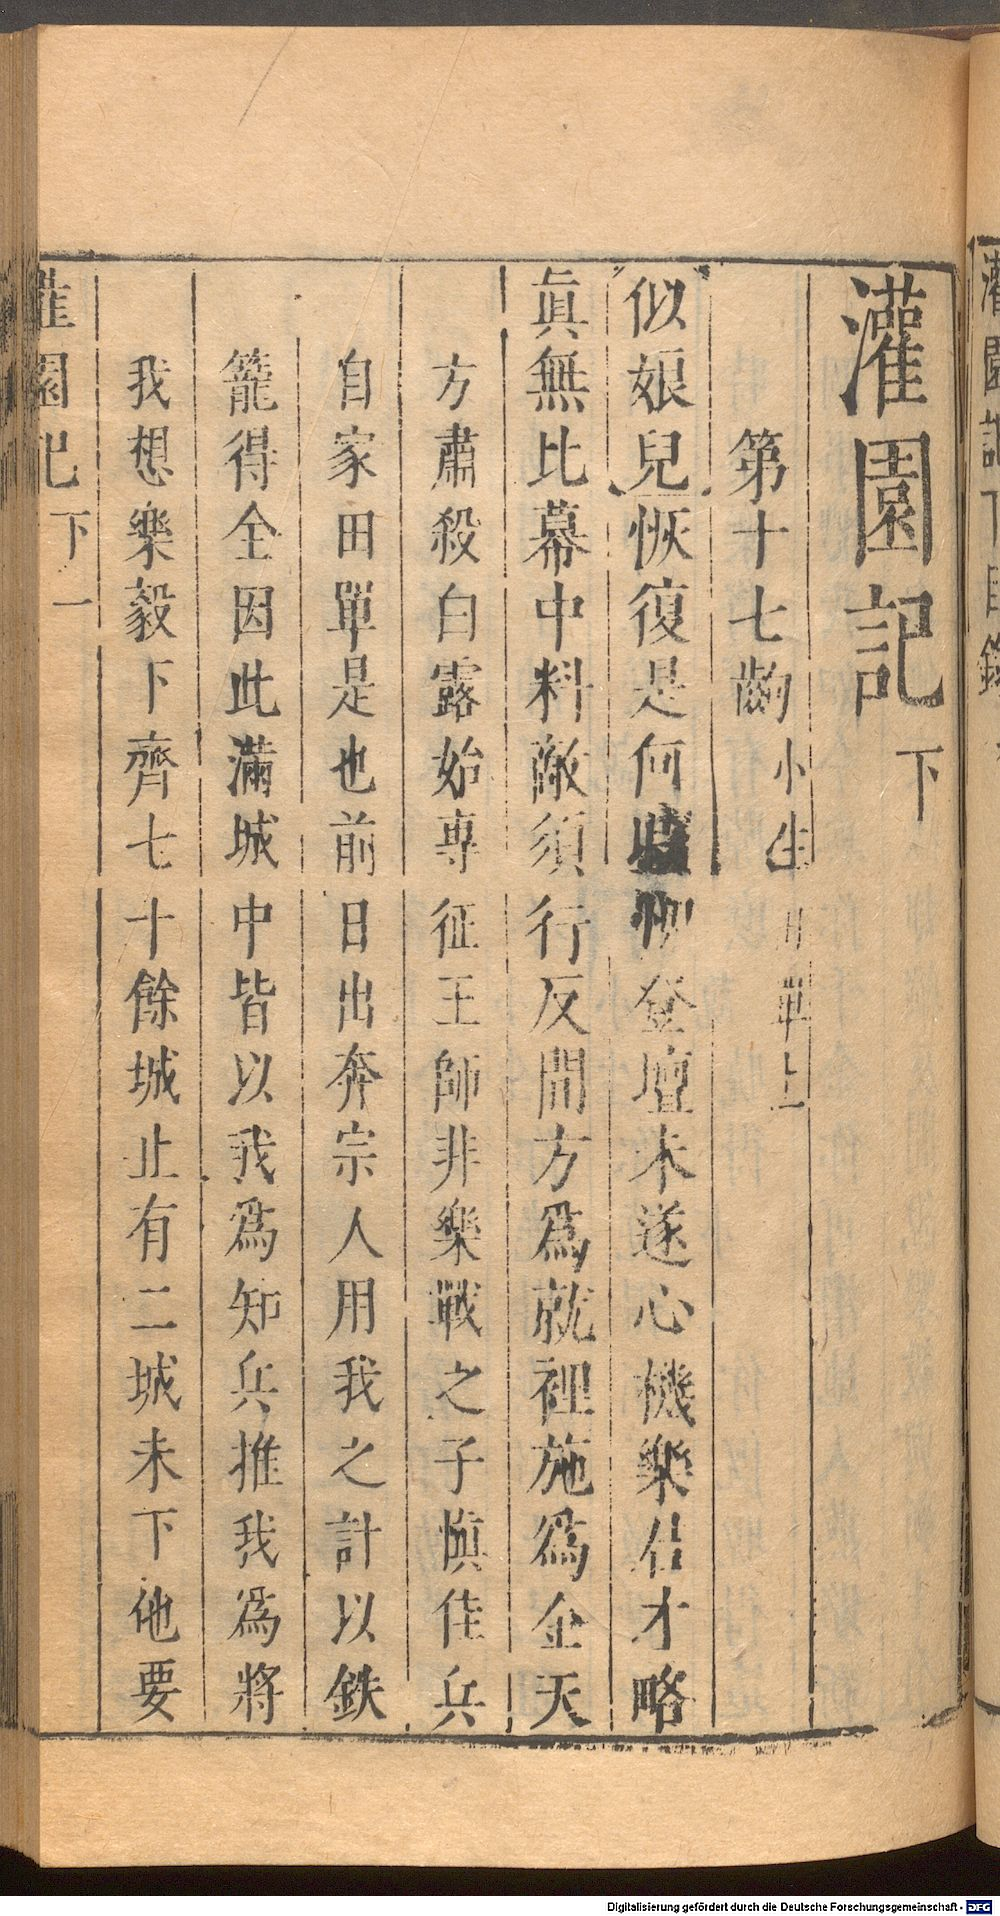 灌園記下目錄
灌園記 下
第十七齣 小生田單上
似娘兒恢復是何時慚登壇未遂心機樂君才略
眞無比幕中料敵須行反間方爲就裡施爲金天
方肅殺白露始專征王師非樂戰之子愼佳兵
自家田單是也前日出奔宗人用我之計以鉄
籠得全因此滿城中皆以我爲知兵推我爲將
我想樂毅下齊七十餘城止有二城未下他要
灌園记 下 一
Digitalisierung gefördert durch die Deutsche Forschungsgemeinschaft - DFG